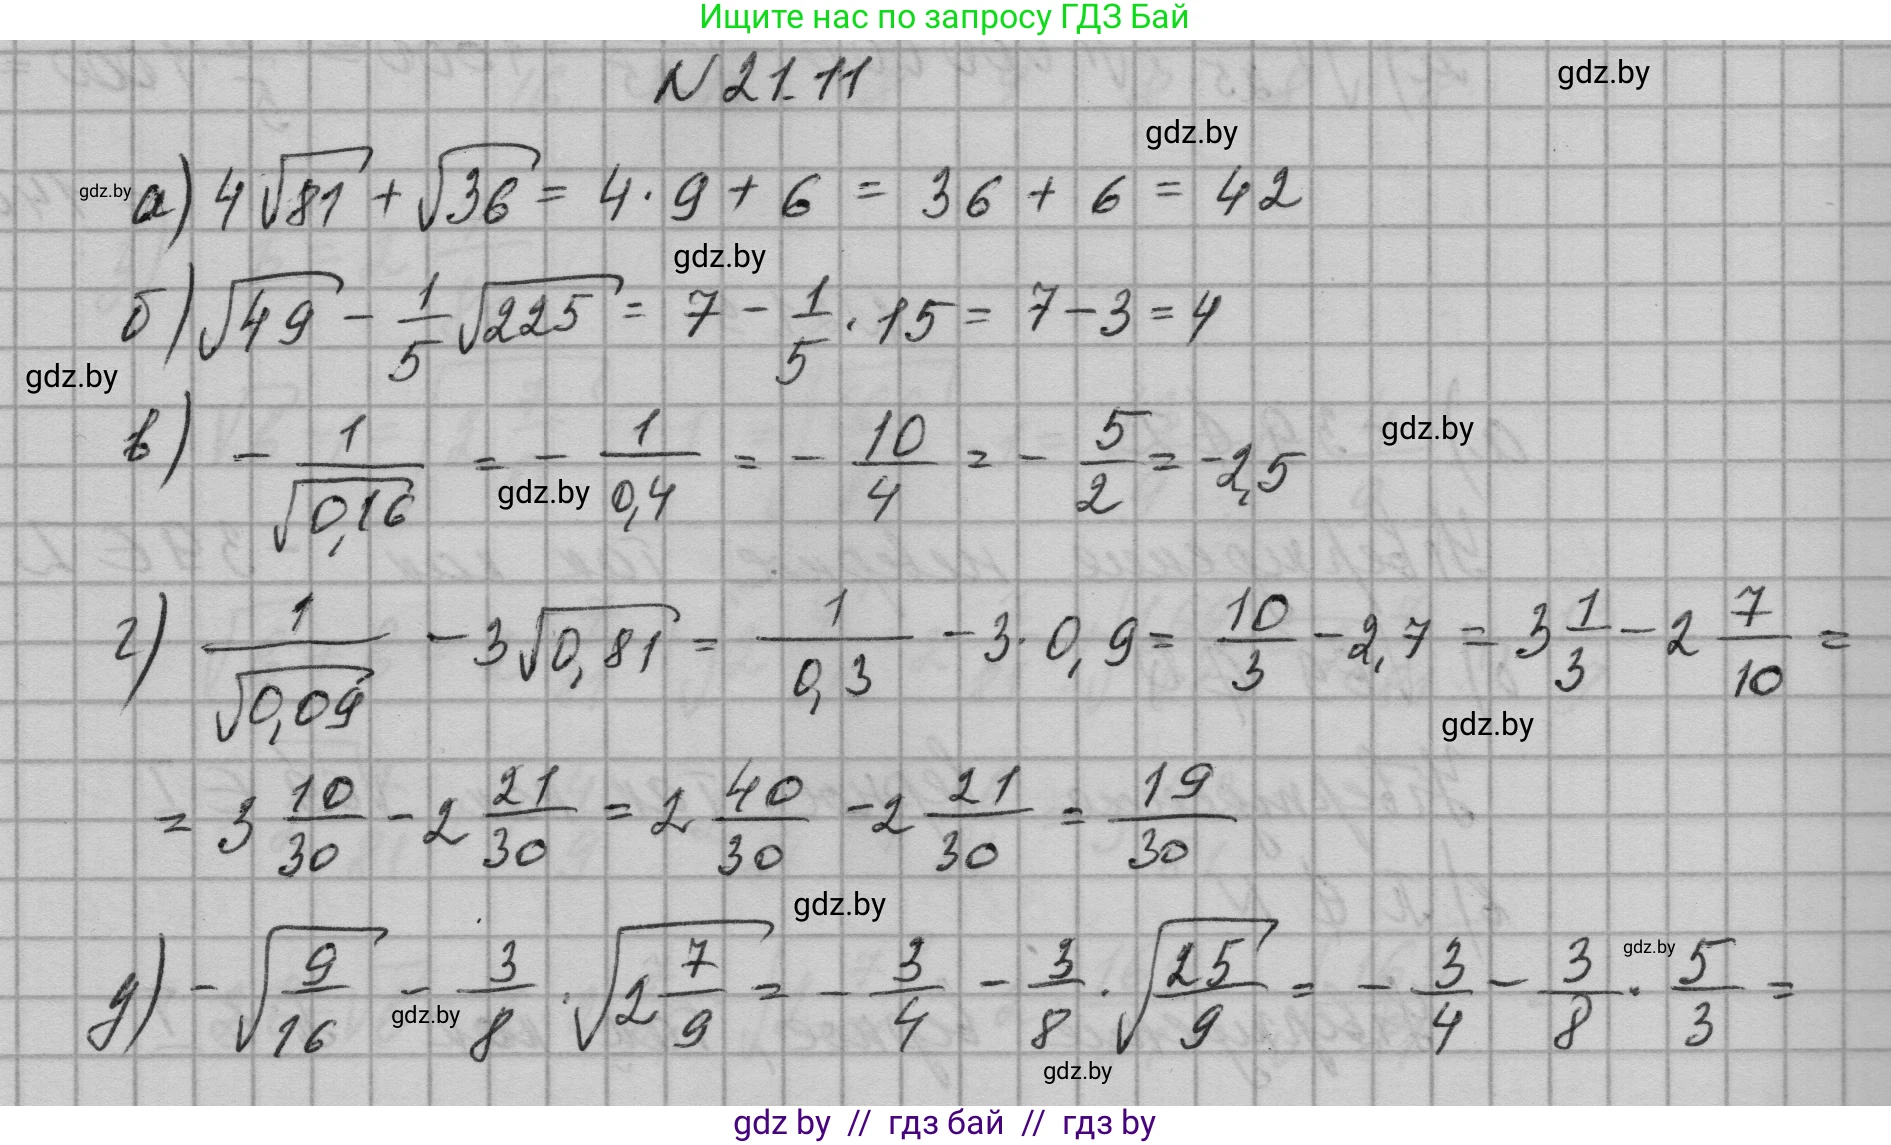 Ищите нас по запросу ГДЗ Бай
N 21.11
gdz.by
gdz.by
gdz.by а) 4√81 + √36 = 4 · 9 + 6 = 36 + 6 = 42
gdz.by
б) √49 − 1/5 √225 = 7 − 1/5 · 15 = 7 − 3 = 4
gdz.by
в) − 1/√0,16 = − 1/0,4 = − 10/4 = − 5/2 = -2,5
gdz.by
gdz.by
г) 1/√0,09 − 3√0,81 = 1/0,3 − 3 · 0,9 = 10/3 − 2,7 = 3 1/3 − 2 7/10 =
gdz.by
= 3 10/30 − 2 21/30 = 2 40/30 − 2 21/30 = 19/30
gdz.by
д) − √(9/16) − 3/8 · √(2 7/9) = − 3/4 − 3/8 · √(25/9) = − 3/4 − 3/8 · 5/3 =
gdz.by
gdz.by
gdz.by
gdz by // гдз бай // гдз by